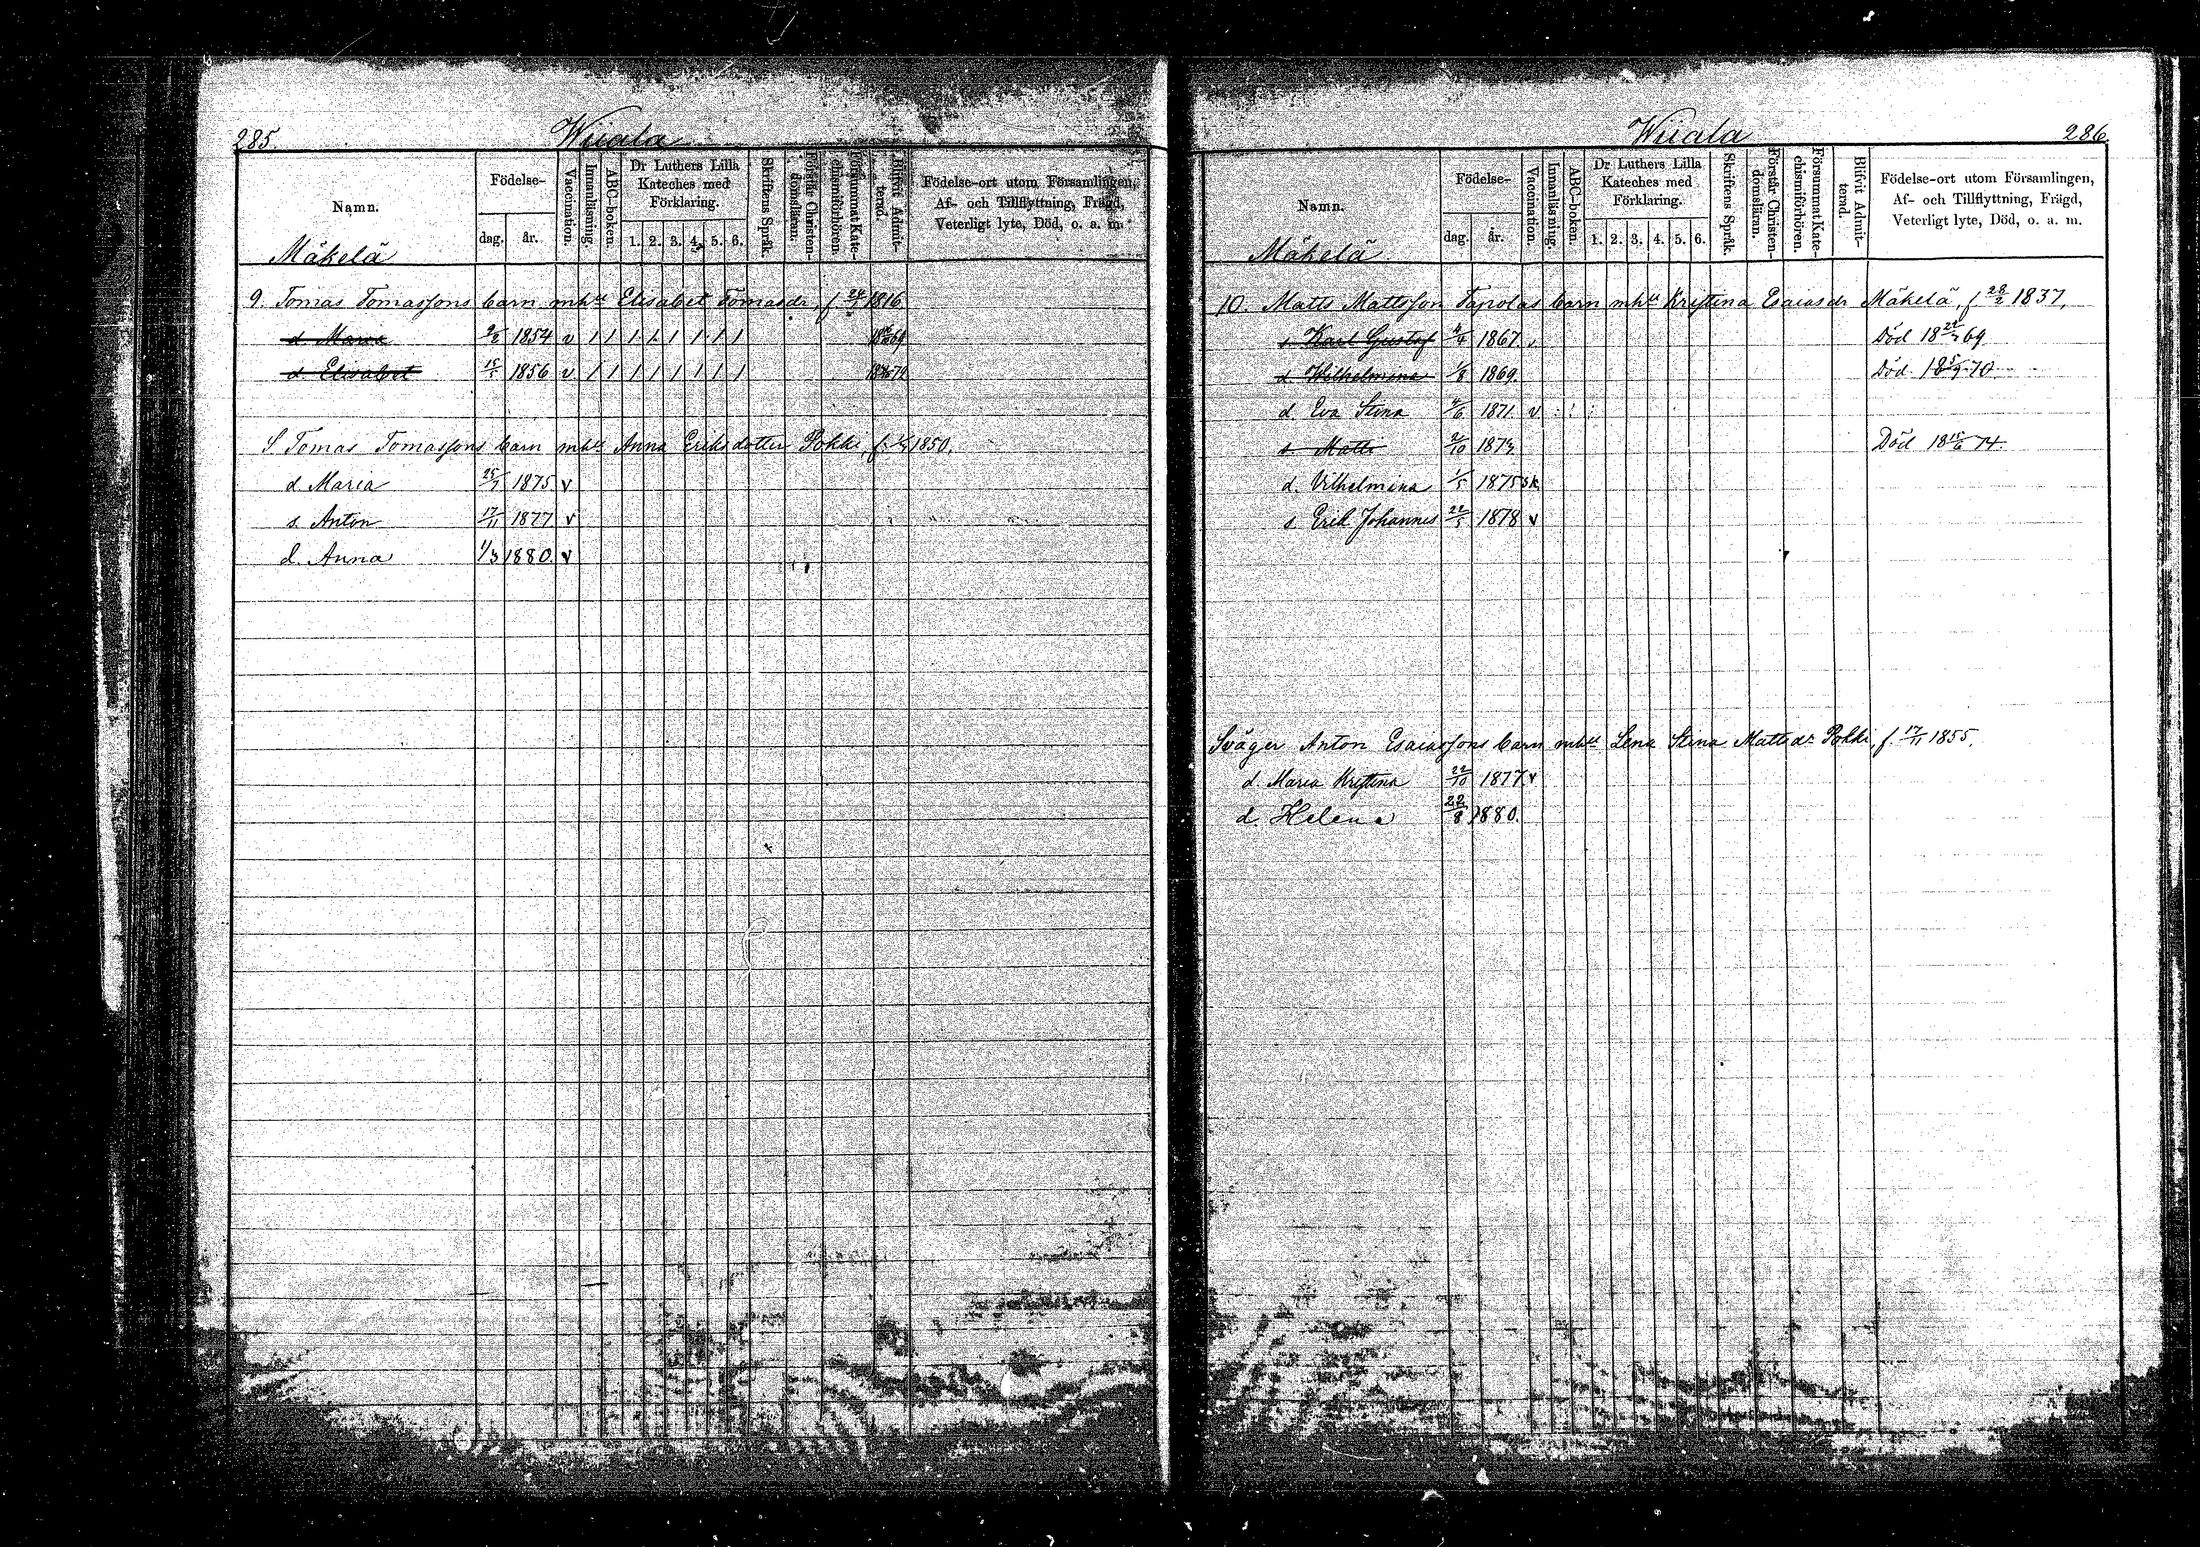 285.
Wiiala
Namn.
Födelse-
dag.
år.
Vaccination.
Innanläsning.
ABC-boken.
Dr Luthers Lilla
Kateches med
Förklaring.
1. 2. 3. 4. 5. 6.
Skriftens Språk.
Förstår Christen-
domslänn.
Försummat Kate-
chismiförhören.
Blifvit Admit-
terad.
Födelse-ort utom Församlingen,
Af- och Tillflyttning, Frägd,
Veterligt lyte, Död, o. a. m.
Mäkelä
9. Tomas Tomassons barn mh Elisabet Tomasdr, f 24/1 1816
d Maria 2/2 1854 v / / / / / / / / 69
d. Elisabet 15/5 1856 v / / / / / / / / 72
S Tomas Tomassons barn mh Anna Eriksdotter Pokki, f. 1850.
d. Maria 25/7 1875 v
s. Anton 17/11 1877 v
d. Anna 1/3 1880. v
Wiiala
286.
Namn.
Födelse-
dag.
år.
Vaccination.
Innanläsning.
ABC-boken.
Dr Luthers Lilla
Kateches med
Förklaring.
1. 2. 3. 4. 5. 6.
Skriftens Språk.
Förstår Christen-
domslänn.
Försummat Kate-
chismiförhören.
Blifvit Admit-
terad.
Födelse-ort utom Församlingen,
Af- och Tillflyttning, Frägd,
Veterligt lyte, Död, o. a. m.
Mäkelä
10. Matts Mattsson Tapolas barn mh Kristina Esaiasdr Mäkelä, f 28/2 1837,
s Karl Gustaf 4/4 1867. v Död 18 69
d Wilhelmina 1/8 1869. Död 18 70
d. Eva Stina 4/6 1871 v
s Matts 2/10 1873 Död 18 74
d. Vilhelmina 1/5 1875
s Erik Johannes 22/5 1878 v
Sväger Anton Esaiassons barn mh Lena Stina Mattsdr Pokki, f. 17/11 1855.
d. Maria Kristina 22/10 1877 v
d. Helena 22/8 1880.